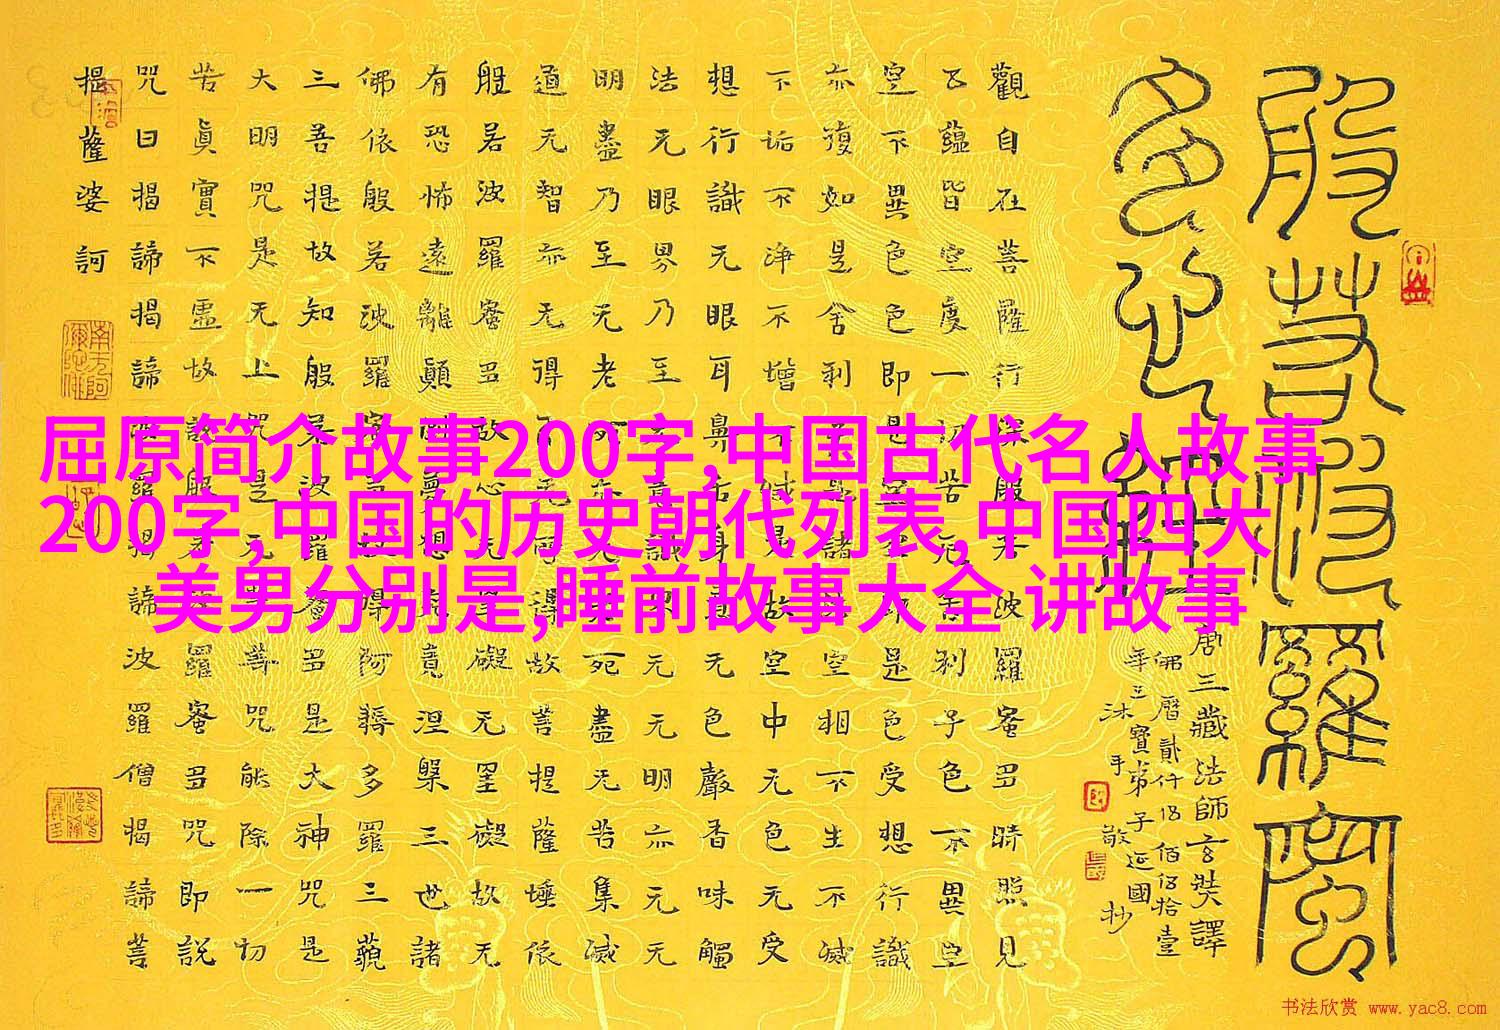 般若波羅蜜
多心經
唐三藏法師玄奘譯
觀自在菩薩行深般若波羅蜜多時照見
五蘊皆空度一切苦厄舍利子色不異空
空不異色色即是空空即是色受想行識
亦復如是舍利子是諸法空相不生不滅
不垢不淨不增不減是故空中无色无受
想行識无眼耳鼻舌身意无色聲香味觸
法无眼界乃至无意識界无无明亦无无
明盡乃至无老死亦无老死盡无苦集滅
道无智亦无得以无所得故菩提薩埵依
般若波羅蜜多故心无罣礙无罣礙故无
有恐怖遠離顛倒夢想究竟涅槃三世諸
佛依般若波羅蜜多故得阿耨多羅三藐
三菩提故知般若波羅蜜多是大神咒是
大明咒是无上咒是无等等咒能除一切
苦真實不虛故說般若波羅蜜多咒即説
咒曰揭諦揭諦波羅揭諦波羅僧揭諦菩
提薩婆訶
屈原简介故事200字,中国古代名人故事
200字,中国的历史朝代列表,中国四大
美男分别是,睡前故事大全 讲故事
书法欣赏 www.yac8.com